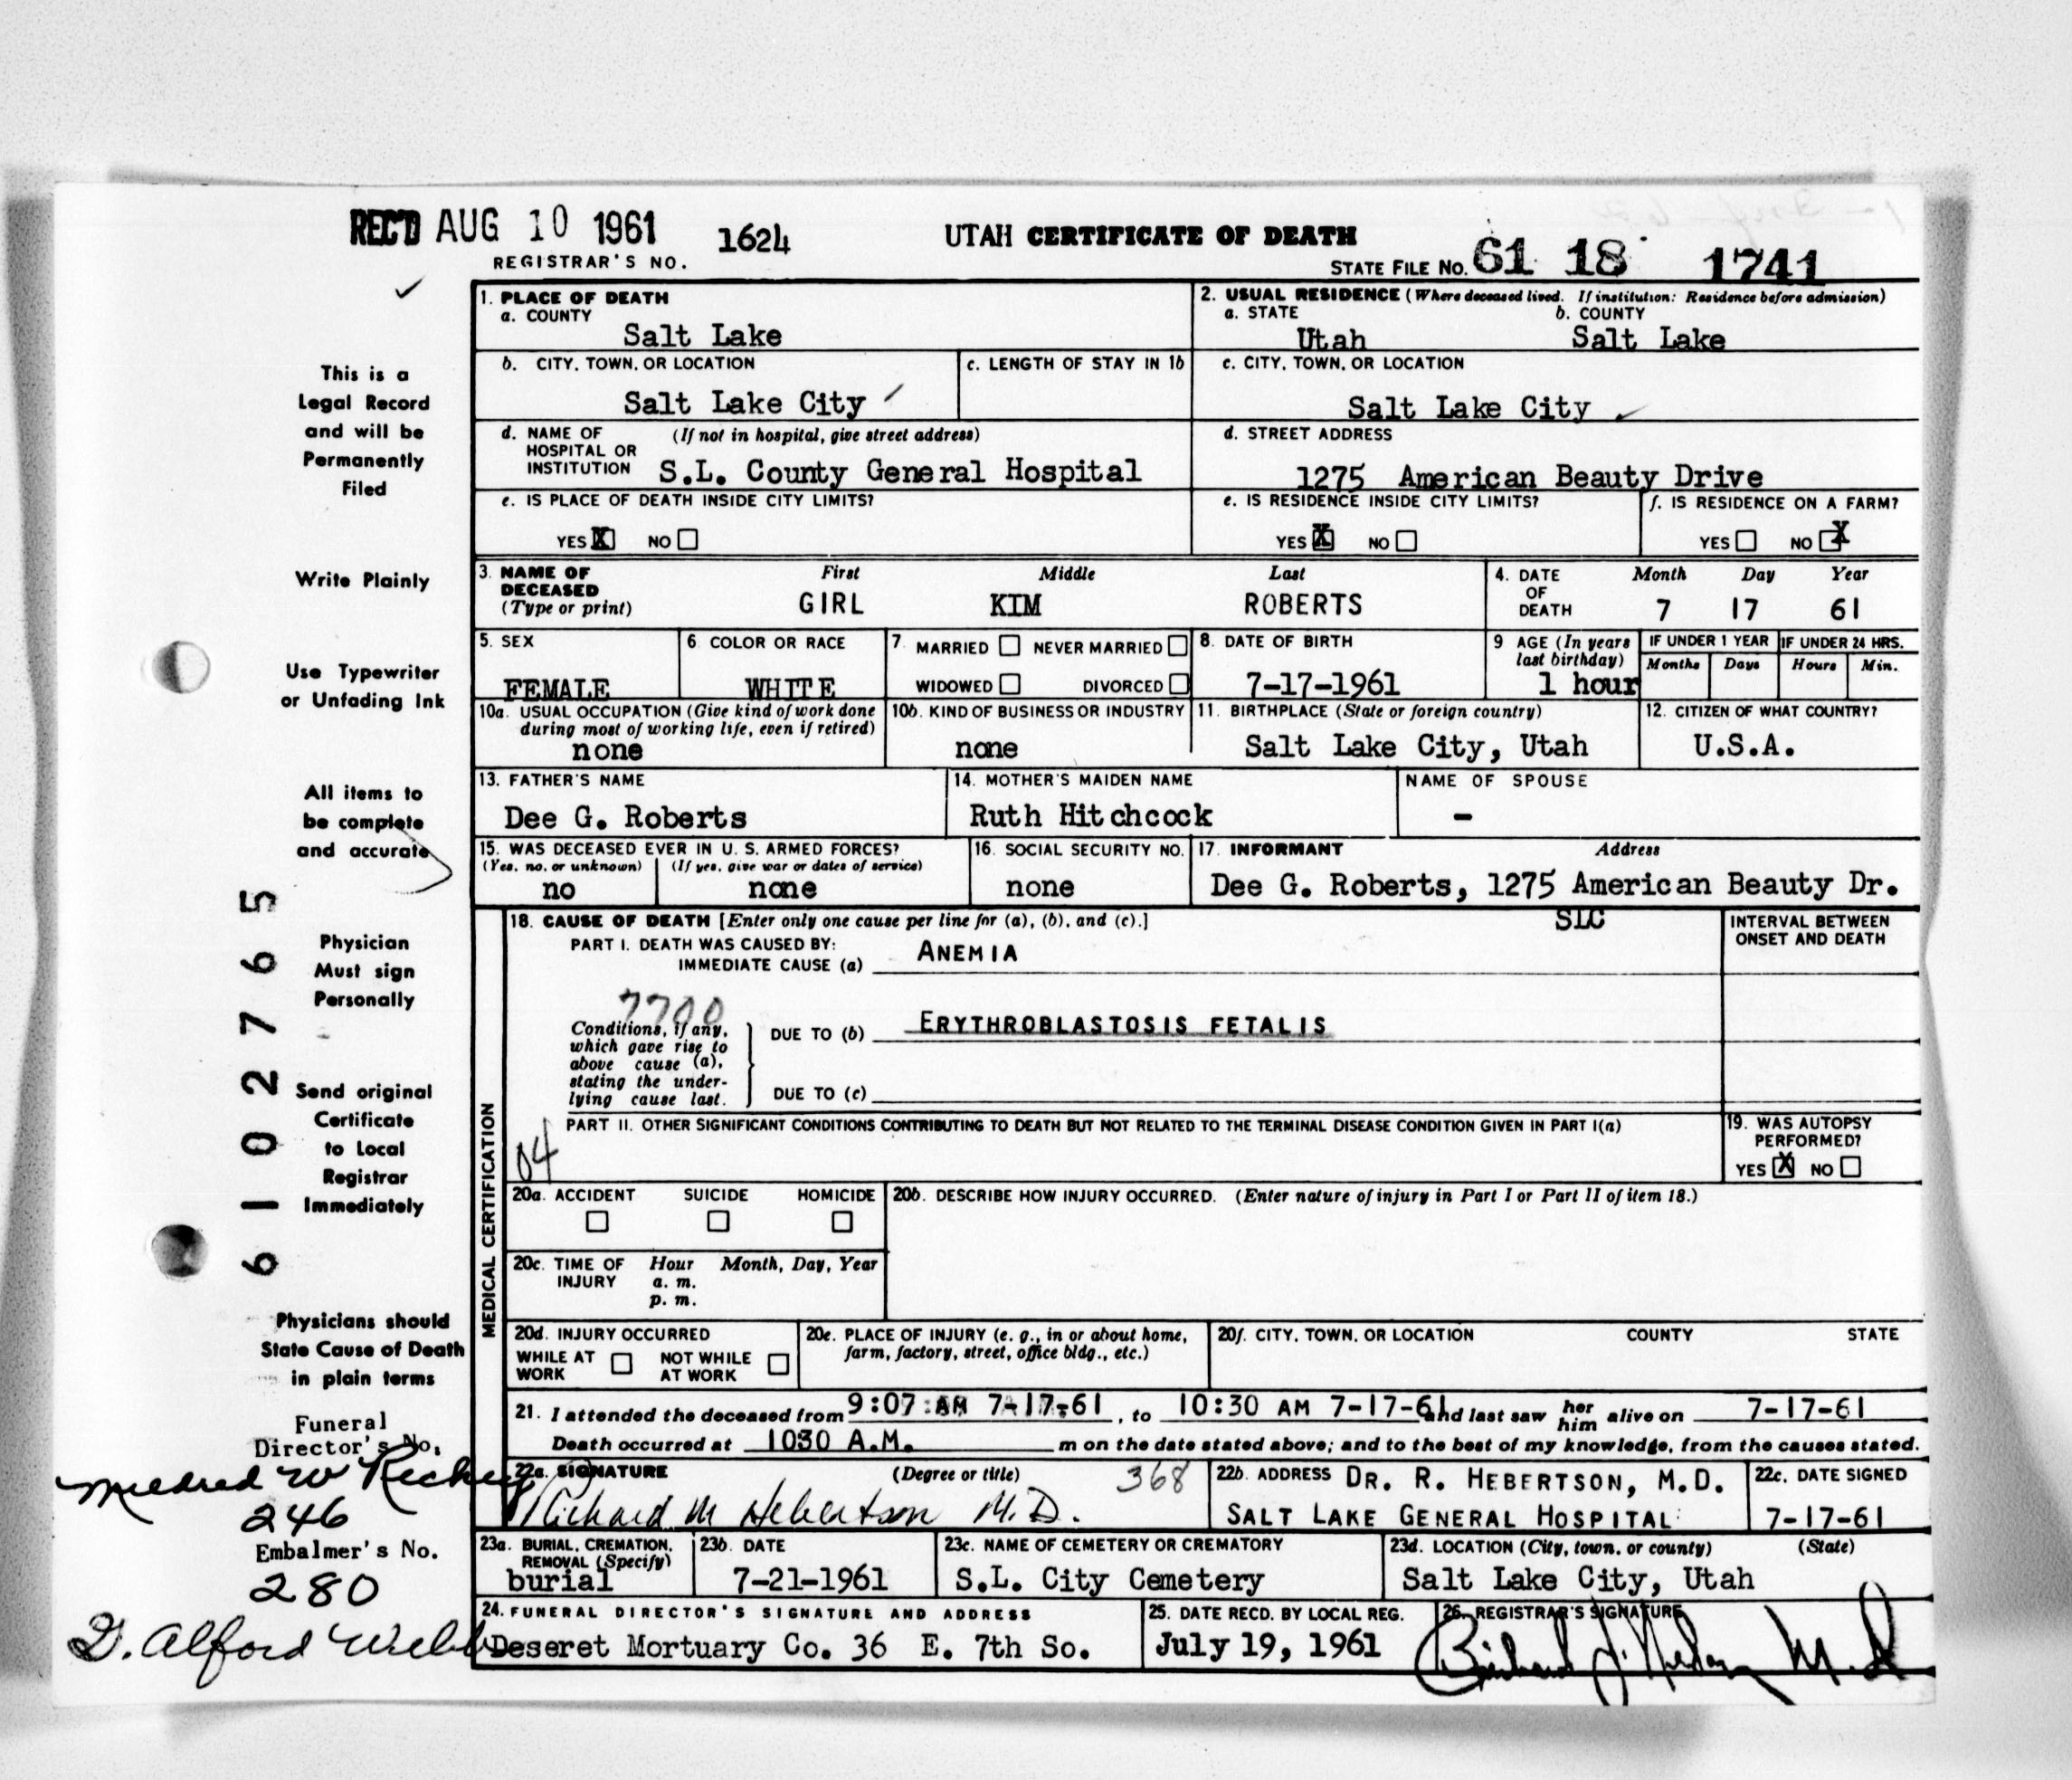 REC'D AUG 10 1961 1624 UTAH CERTIFICATE OF DEATH
REGISTRAR'S NO. STATE FILE NO. 61 18 1741
1. PLACE OF DEATH
a. COUNTY
Salt Lake
2. USUAL RESIDENCE (Where deceased lived. If institution: Residence before admission)
a. STATE b. COUNTY
Utah Salt Lake
b. CITY, TOWN, OR LOCATION c. LENGTH OF STAY IN 1b
Salt Lake City
c. CITY, TOWN, OR LOCATION
Salt Lake City
d. NAME OF HOSPITAL OR INSTITUTION (If not in hospital, give street address)
S.L. County General Hospital
d. STREET ADDRESS
1275 American Beauty Drive
e. IS PLACE OF DEATH INSIDE CITY LIMITS?
YES X NO
e. IS RESIDENCE INSIDE CITY LIMITS?
YES X NO
f. IS RESIDENCE ON A FARM?
YES NO X
3. NAME OF DECEASED (Type or print) First Middle Last
GIRL KIM ROBERTS
4. DATE OF DEATH Month Day Year
7 17 61
5. SEX
FEMALE
6 COLOR OR RACE
WHITE
7. MARRIED NEVER MARRIED
WIDOWED DIVORCED
8. DATE OF BIRTH
7-17-1961
9 AGE (In years last birthday)
1 hour
IF UNDER 1 YEAR IF UNDER 24 HRS.
Months Days Hours Min.
10a. USUAL OCCUPATION (Give kind of work done during most of working life, even if retired)
none
10b. KIND OF BUSINESS OR INDUSTRY
none
11. BIRTHPLACE (State or foreign country)
Salt Lake City, Utah
12. CITIZEN OF WHAT COUNTRY?
U.S.A.
13. FATHER'S NAME
Dee G. Roberts
14. MOTHER'S MAIDEN NAME
Ruth Hitchcock
NAME OF SPOUSE
-
15. WAS DECEASED EVER IN U. S. ARMED FORCES?
(Yes, no, or unknown) (If yes, give war or dates of service)
no none
16. SOCIAL SECURITY NO.
none
17. INFORMANT Address
Dee G. Roberts, 1275 American Beauty Dr.
SLC
MEDICAL CERTIFICATION
18. CAUSE OF DEATH [Enter only one cause per line for (a), (b), and (c).]
PART I. DEATH WAS CAUSED BY:
IMMEDIATE CAUSE (a) ANEMIA
INTERVAL BETWEEN ONSET AND DEATH
7700
Conditions, if any,
which gave rise to
above cause (a),
stating the under-
lying cause last.
DUE TO (b) ERYTHROBLASTOSIS FETALIS
DUE TO (c)
PART II. OTHER SIGNIFICANT CONDITIONS CONTRIBUTING TO DEATH BUT NOT RELATED TO THE TERMINAL DISEASE CONDITION GIVEN IN PART I(a)
04
19. WAS AUTOPSY PERFORMED?
YES X NO
20a. ACCIDENT SUICIDE HOMICIDE
20b. DESCRIBE HOW INJURY OCCURRED. (Enter nature of injury in Part I or Part II of item 18.)
20c. TIME OF INJURY Hour Month, Day, Year
a. m.
p. m.
20d. INJURY OCCURRED
WHILE AT WORK NOT WHILE AT WORK
20e. PLACE OF INJURY (e. g., in or about home, farm, factory, street, office bldg., etc.)
20f. CITY, TOWN, OR LOCATION COUNTY STATE
21. I attended the deceased from 9:07 AM 7-17-61, to 10:30 AM 7-17-61 and last saw her him alive on 7-17-61
Death occurred at 1030 A.M. m on the date stated above; and to the best of my knowledge, from the causes stated.
22a. SIGNATURE (Degree or title) 368
Richard M Hebertson M.D.
22b. ADDRESS DR. R. HEBERTSON, M.D.
SALT LAKE GENERAL HOSPITAL
22c. DATE SIGNED
7-17-61
23a. BURIAL, CREMATION, REMOVAL (Specify)
burial
23b. DATE
7-21-1961
23c. NAME OF CEMETERY OR CREMATORY
S.L. City Cemetery
23d. LOCATION (City, town, or county) (State)
Salt Lake City, Utah
24. FUNERAL DIRECTOR'S SIGNATURE AND ADDRESS
Deseret Mortuary Co. 36 E. 7th So.
25. DATE RECD. BY LOCAL REG.
July 19, 1961
26. REGISTRAR'S SIGNATURE
M. D
This is a
Legal Record
and will be
Permanently
Filed
Write Plainly
Use Typewriter
or Unfading Ink
All items to
be complete
and accurate
Physician
Must sign
Personally
Send original
Certificate
to Local
Registrar
Immediately
Physicians should
State Cause of Death
in plain terms
6102765
Funeral
Director's No.
Mildred W
246
Embalmer's No.
280
D. Alford Webb